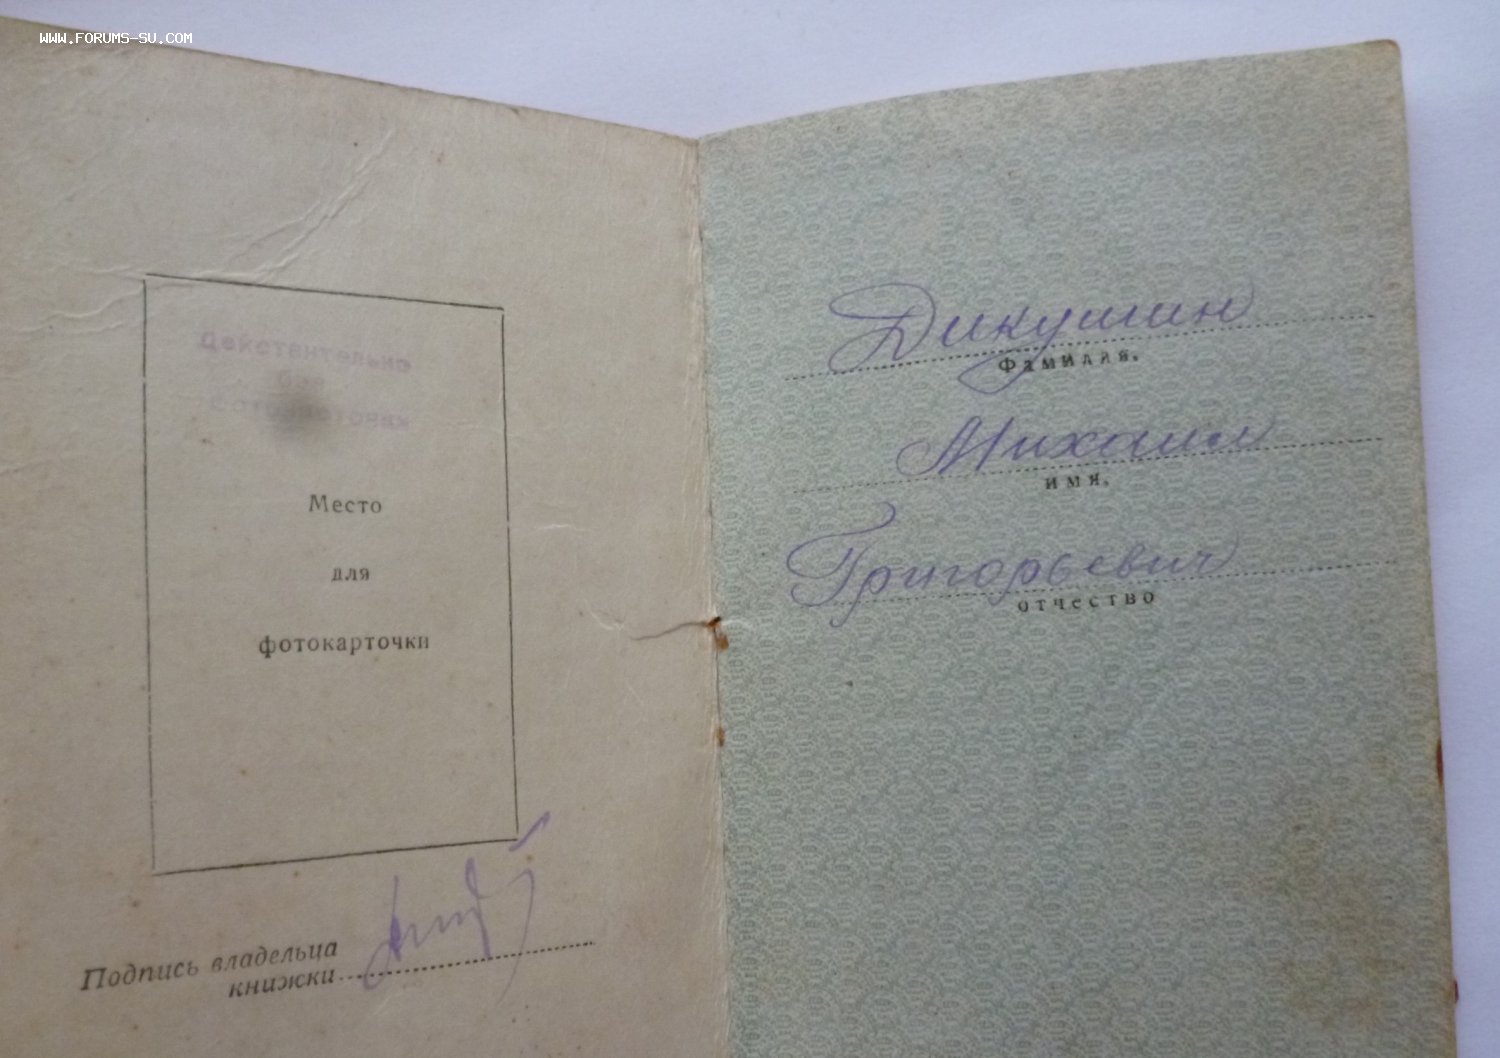 WWW.FORUMS-SU.COM
Действительно
без
фотокарточки
Место
для
фотокарточки
Подпись владельца
книжки
Дикушин
Фамилия.
Михаил
имя.
Григорьевич
отчество